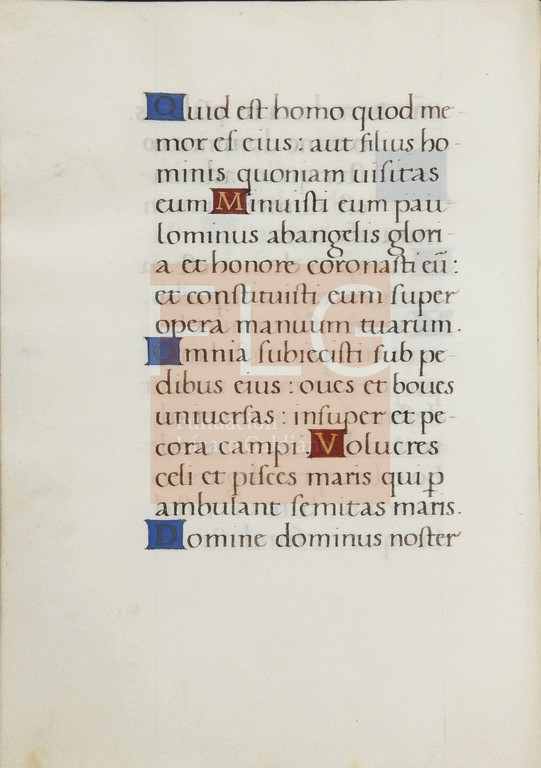 Quid est homo quod me-
mor es eius: aut filius ho-
minis quoniam uisitas
eum Minuisti eum pau-
lominus abangelis glori-
a et honore coronasti eū:
et constituisti eum super
opera manuum tuarum.
Omnia subiecisti sub pe-
dibus eius: oues et boues
uniuersas: insuper et pe-
cora campi. Volucres
celi et pisces maris qui ꝑ
ambulant semitas maris.
Domine dominus noster
FLG
Fundación
Lázaro Galdiano